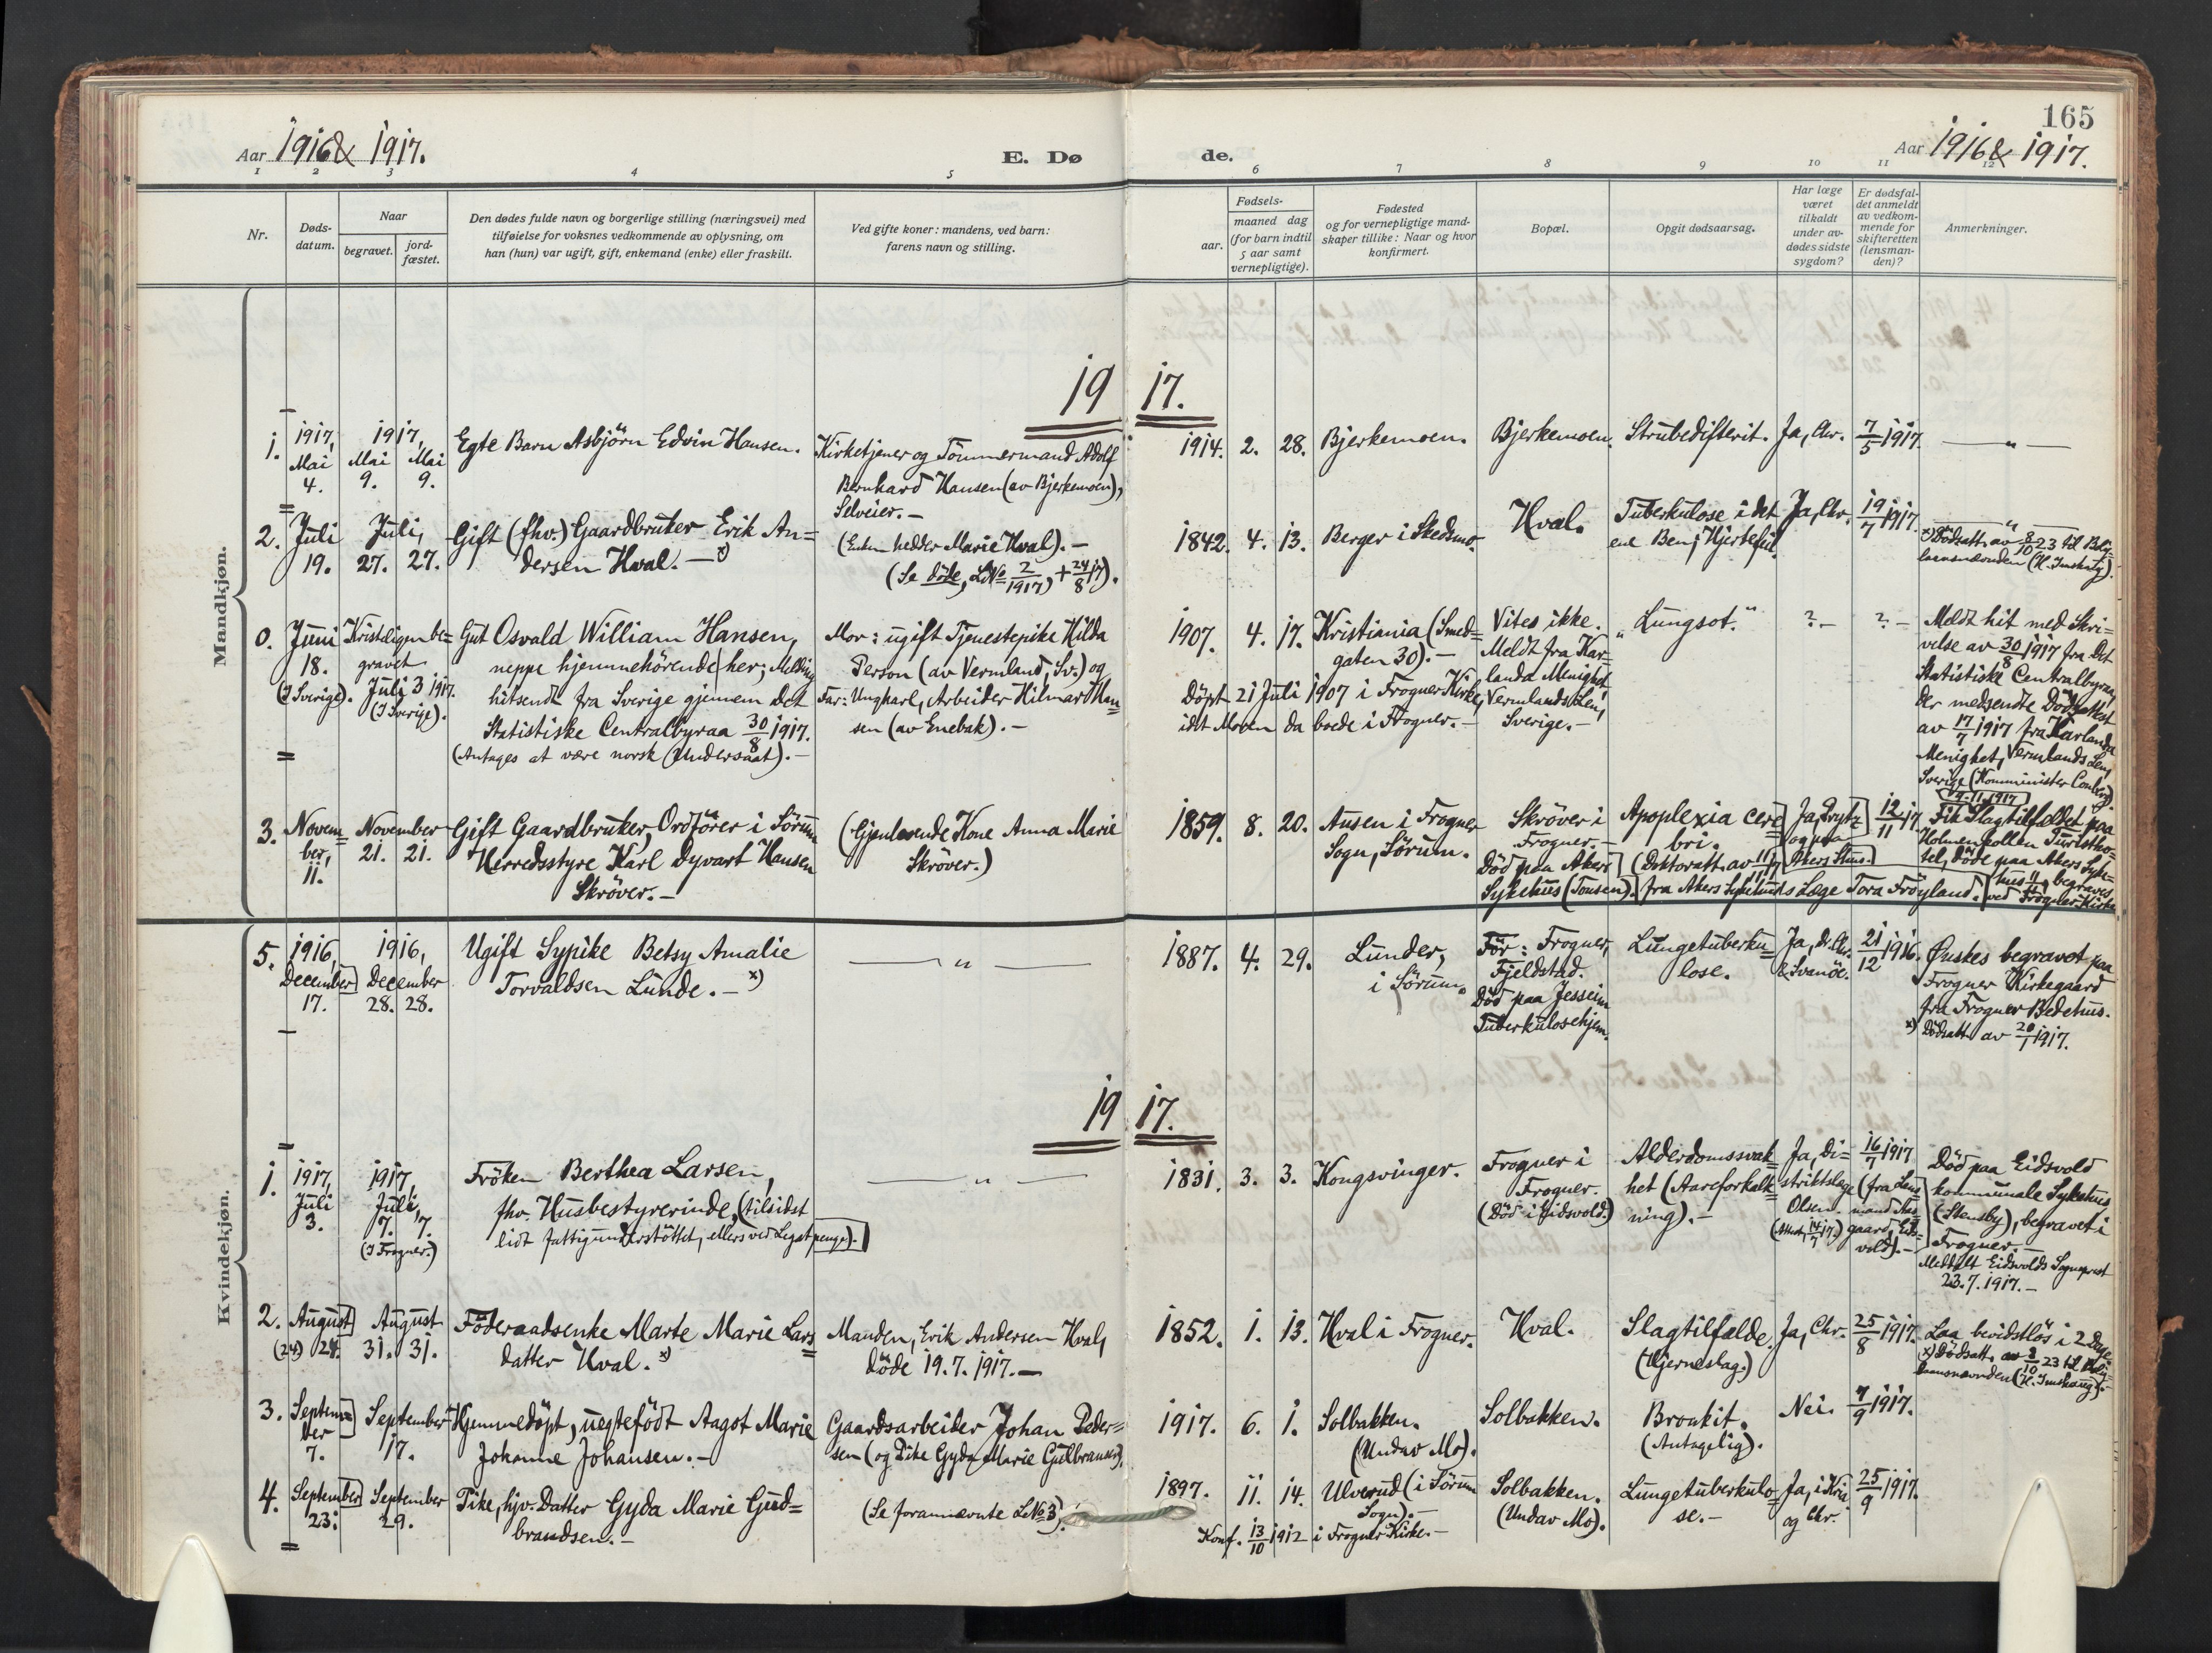 165
Aar 1916 & 1917.
E. Dø
de.
Aar 1916 & 1917.
1 2 3 4 5 6 7 8 9 10 11 12
Nr.
Døds-
datum.
Naar
begravet.
jord-
fæstet.
Den dødes fulde navn og borgerlige stilling (næringsvei) med
tilføielse for voksnes vedkommende av oplysning, om
han (hun) var ugift, gift, enkemand (enke) eller fraskilt.
Ved gifte koner: mandens, ved barn:
farens navn og stilling.
Fødsels-
aar.
maaned dag
(for barn indtil
5 aar samt
vernepligtige).
Fødested
og for vernepligtige mand-
skaper tillike: Naar og hvor
konfirmert.
Bopæl.
Opgit dødsaarsag.
Har læge
været
tilkaldt
under av-
dødes sidste
sygdom?
Er dødsfal-
det anmeldt
av vedkom-
mende for
skifteretten
(lensman-
den)?
Anmerkninger.
Mandkjøn.
19 17.
1.
1917,
Mai
4.
1917,
Mai Mai
9. 9.
Egte Barn Asbjörn Edvin Hansen.
Kirketjener og Tömmermand Adolf
Bernhard Hansen (av Bjerkemoen),
Selveier. —
1914. 2. 28.
Bjerkemoen.
Bjerkemoen.
Strubedifterit.
Ja, Chr.
7/5 1917.
— " —
2.
Juli
19.
Juli,
27. 27.
Gift (fhv.) Gaardbruker Erik An=
dersen Hval. — x)
(Enken hedder Marie Hval). —
(Se døde, L№ 2/1917, + 24/8 17).
1842. 4. 13.
Berger i Skedsmo.
Hval.
Tuberkulose i det
ene Ben; Hjertefeil.
Ja, Chr.
19/7 1917.
— " —
x) Dödsatt. av 8/10 23 til
0.
Juni
18.
(I Sverige).
Kristeligen be=
gravet
Juli 3 1917.
(I Sverige).
Gut Osvald William Hansen,
neppe hjemmehörende her; Melding
hitsendt fra Sverige gjennem det
Statistiske Centralbyraa 30/8 1917.
(Antages at være norsk Undersaat). —
Mor: ugift Tjenestepike Hilda
Person (av Vermland, Sv.) og
Far: Ungkarl, Arbeider Hilmar Han=
sen (av Enebak). —
1907. 4. 17.
Kristiania (Smed=
gaten 30). —
Döpt 21 Juli 1907 i Frogner Kirke,
idt Moren da boede i Frogner. —
Vites ikke.
Meldt fra Kar=
landa Menighet
Vermlands Len,
Sverige. —
"Lungsot."
? —
? —
Meldt hit med Skri=
velse av 30/8 1917 fra det
Statistiske Centralbyraa,
der medsendte Dödsattest
av 17/7 1917 fra Karlanda
Menighet, Vermlands Len,
Sverige (Komminister
3.
Novem=
ber,
11.
November
21. 21.
Gift Gaardbruker, Ordförer i Sörum
Herredsstyre Karl Dyvart Hansen
Skröver. —
(Gjenlevende Kone Anna Marie
Skröver.)
1859. 8. 20.
Ausen i Frogner
Sogn, Sörum.
Skröver i
Frogner. —
Död paa Akers
Sykehus (Tonsen).
Apoplexia cere=
bri. —
(Doktoratt. av 11/11 17
fra Akers Sykehus's Læge Tora Fröyland.
Ja,
og paa
Akers Shus.
12/11 17.
14.11.1917
Fik Slagtilfældet paa
Holmenkollen Turistho=
tel, döde paa Akers Syke=
hus 11/11, begraves
ved Frogner Kirke
Kvindekjøn.
5.
1916,
December
17.
1916,
December
28. 28.
Ugift Sypike Betsy Amalie
Torvaldsen Lunde. — x)
— " —
1887. 4. 29.
Lunder,
i Sörum.
För: Frogner,
Fjeldstad.
Död paa Jessheim
Tuberkulosehjem.
Lungetuberku=
lose.
Ja, Dr. Chr.
& Svanöe.
21/12 1916.
Ønskes begravet paa
Frogner Kirkegaard
fra Frogner Bedehus.
x) Dödsatt. av 20/1 1917.
19 17.
1.
1917,
Juli
3.
1917,
Juli,
7. 7.
(I Frogner.)
Fröken Berthea Larsen,
fhv. Husbestyrerinde, (tilsidst
lidt fattigunderstöttet, ellers ved Legatpenge).
— " —
1831. 3. 3.
Kongsvinger.
Frogner i
Frogner.
(Död i Eidsvold.)
Alderdomssvak=
het (Aareforkalk=
ning). —
Ja, Di=
striktslæge
Olsen.
(Attest, 14/7 17.)
16/7 1917
(fra Lens=
mand
gaard, Eids=
vold). —
Död paa Eidsvold
kommunale Sykehus
(Stensby), begravet i
Frogner. —
Meddelt Eidsvolds Sogneprest
23.7.1917. —
2.
August
(24) 24.
August
31. 31.
Föderaadsenke Marte Marie Lars=
datter Hval. x)
Manden, Erik Andersen Hval,
döde 19.7.1917. —
1852. 1. 13.
Hval i Frogner.
Hval.
Slagtilfælde.
(Hjerneslag.)
Ja, Chr.
25/8 1917.
Laa bevidstlös i 2 Dage.
x) Dödsatt. av 8/10 23 til
3.
Septem=
ber
7.
September
17.
Hjemmedöpt, uegtefödt Aagot Marie
Johanne Johansen. —
Gaardsarbeider Johan Peder=
sen (og Pike Gyda Marie Gulbransen).
1917. 6. 1.
Solbakken.
(Undav Mo).
Solbakken.
Bronkit.
(Antagelig).
Nei.
7/9 1917.
4.
September
23.
September
29.
Pike, hjv. Datter Gyda Marie Gud=
brandsen. —
(Se forannævnte L№ 3).
1897. 11. 14.
Ulverud (i Sörum
Sogn). —
Konf. 13/10 1912 i Frogner Kirke. —
Solbakken.
(Undav Mo).
Lungetuberkulo=
se. —
Ja, i Kria
og Chr.
25/9 1917.